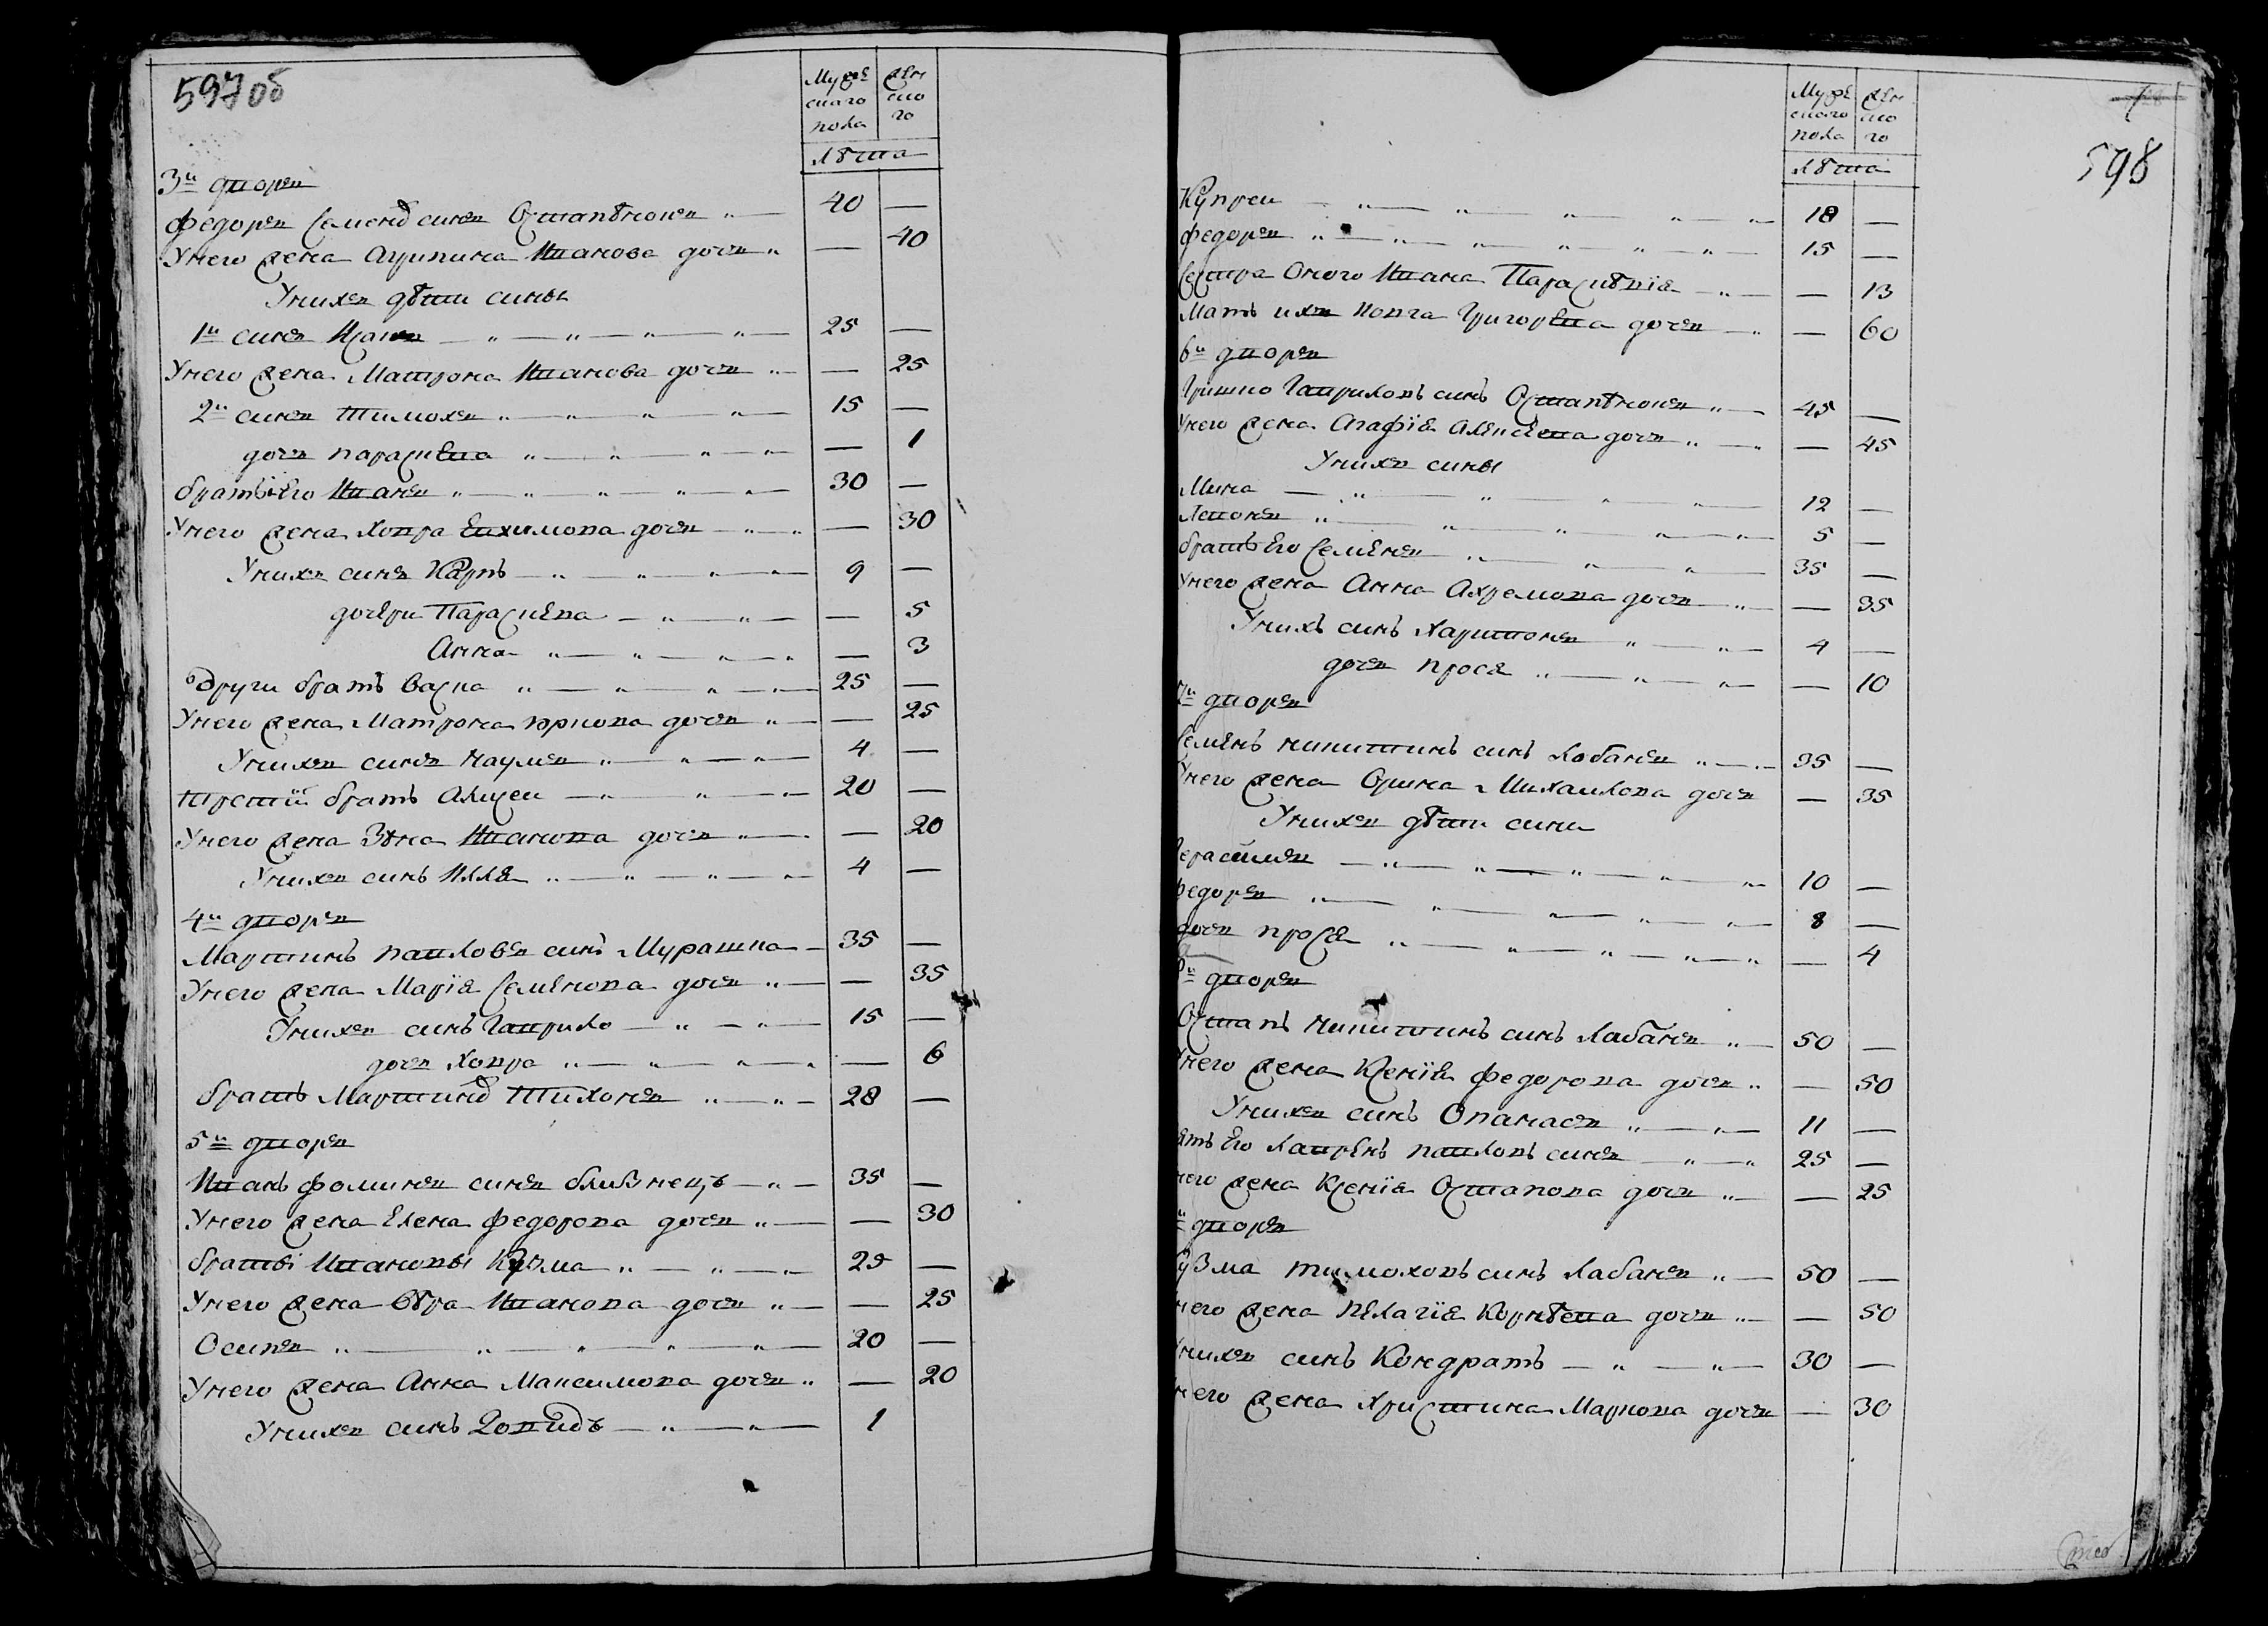 597об
Мужескаго пола
Женского
лѣта
3й дворъ
Федоръ Семеновъ синъ Остапѣнокъ 40 —
Унего жена Агрипина Иванова дочъ — 40
Унихъ дѣти сины
1й синъ Исакъ 25 —
Унего жена Матрона Иванова дочъ — 25
2й синъ Тимохъ 15 —
дочъ параскева — 1
братъ Его Иванъ 30 —
Унего жена Ховра Евхимова дочъ — 30
Унихъ синъ Карпъ 9 —
дочери Параскева — 5
Анна — 3
други братъ Васка 25 —
Унего жена Матрона юркова дочъ — 25
Унихъ синъ Наумъ 4 —
третій братъ Алисеи 20 —
Унего жена Зѣнка Иванова дочъ — 20
Унихъ синъ Илля 4 —
4й дворъ
Мартинъ павловъ синъ Мурашка 35 —
Унего жена Марія Семенова дочъ — 35
Унихъ синъ Гаврило 15 —
дочъ Ховра — 6
братъ Мартиновъ Тихонъ 28 —
5й дворъ
Иванъ фоминъ синъ близнецъ 35 —
Унего жена Елена федорова дочъ — 30
братъ Ивановы Кузма 25 —
Унего жена Вѣра Иванова дочъ — 25
Осипъ 20 —
Унего жена Анна Максимова дочъ — 20
Унихъ синъ Довидъ 1
598
Мужескаго пола
Женского
лѣта
Купреи 18 —
федоръ 15 —
Сестра Оного Ивана Параскѣвія — 13
Мать ихъ Ховга Григорева дочъ — 60
6й дворъ
Гришко Гавриловъ синъ Остапѣнокъ 45 —
Унего жена Агафія Алексева дочъ — 45
Унихъ сины
Мина 12 —
Левонъ 5 —
братъ Его Семенъ 35 —
Унего жена Анна Ахремова дочъ — 35
Унихъ синъ Харитонъ 4 —
дочъ прося — 10
7й дворъ
Семенъ никитинъ синъ Лобанъ 35 —
Унего жена Орина Михаилова дочъ — 35
Унихъ дѣти сини
Герасимъ 10 —
федоръ 8 —
дочъ прося — 4
й дворъ
Остапъ никитинъ синъ Лабанъ 50 —
Унего жена Ксенія федорова дочъ — 50
Унихъ синъ Опанасъ 11 —
ять Его Лавренъ павловъ синъ 25 —
него жена Ксенія Остапова дочъ — 25
й дворъ
узма тимоховъ синъ Лабанъ 50 —
него жена пелагія Корнѣева дочъ — 50
нихъ синъ Кондратъ 30 —
него жена Христина Маркова дочъ — 30